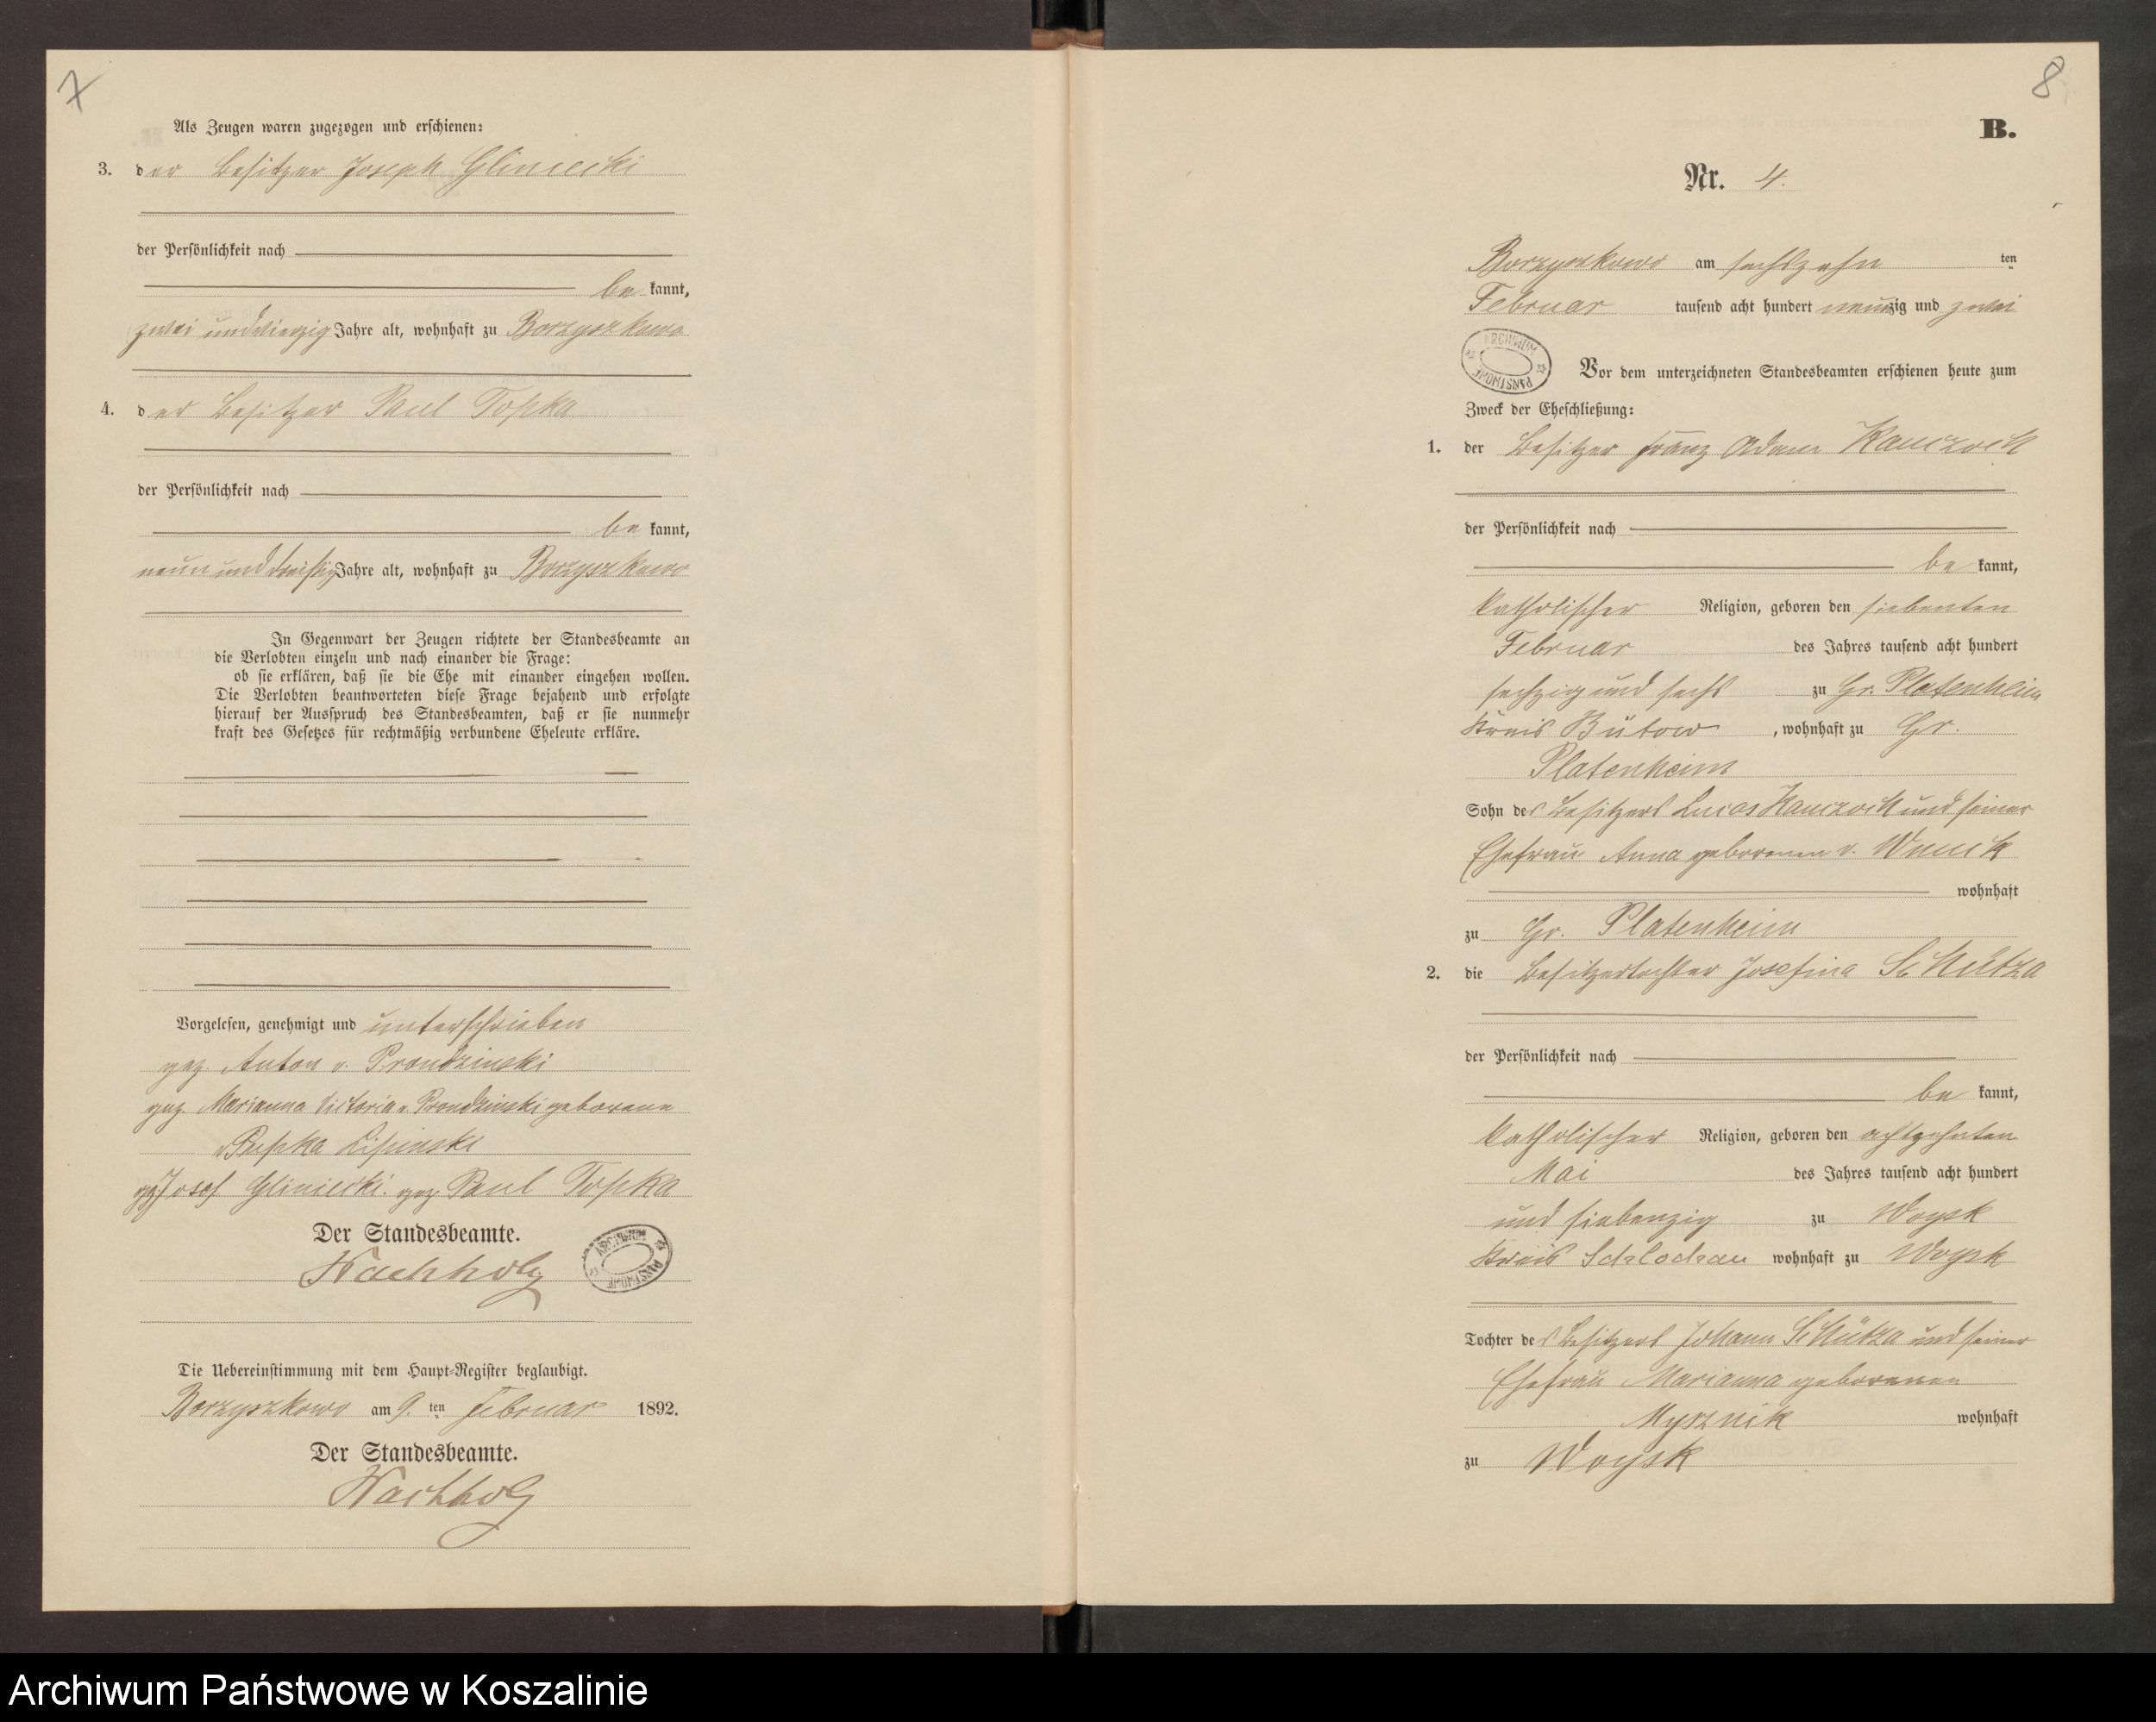 7
Als Zeugen waren zugezogen und erschienen:
3. der Besitzer Joseph Gliniecki
der Persönlichkeit nach
be kannt,
zwei und vierzig Jahre alt, wohnhaft zu Borzyszkowo
4. der Besitzer Paul Topka
der Persönlichkeit nach
be kannt,
neun und dreißig Jahre alt, wohnhaft zu Borzyszkowo
In Gegenwart der Zeugen richtete der Standesbeamte an
die Verlobten einzeln und nach einander die Frage:
ob sie erklären, daß sie die Ehe mit einander eingehen wollen.
Die Verlobten beantworteten diese Frage bejahend und erfolgte
hierauf der Ausspruch des Standesbeamten, daß er sie nunmehr
kraft des Gesetzes für rechtmäßig verbundene Eheleute erkläre.
Vorgelesen, genehmigt und unterschrieben
gez. Anton v. Prondzinski
gez Marianna Victoria v Prondzinski geborene
Lipinski
gez Josef Gliniecki. gez Paul Topka
Der Standesbeamte.
Wachholz
ARCHIWUM PAŃSTWOWE
Die Uebereinstimmung mit dem Haupt-Register beglaubigt.
Borzyszkowo am 9. ten Februar 1892.
Der Standesbeamte.
Wachholz
8
B.
Nr. 4.
Borzyszkowo am sechszehn ten
Februar tausend acht hundert neunzig und zwei
ARCHIWUM PAŃSTWOWE
Vor dem unterzeichneten Standesbeamten erschienen heute zum
Zweck der Eheschließung:
1. der Besitzer Franz Adam Kanczoch
der Persönlichkeit nach
be kannt,
katholischer Religion, geboren den siebenten
Februar des Jahres tausend acht hundert
sechzig und sechs zu Gr. Platenheim
Kreis Bütow, wohnhaft zu Gr.
Platenheim
Sohn des Besitzers Lucas Kanczoch und seiner
Ehefrau Anna geborenen v.
wohnhaft
zu Gr. Platenheim
2. die Besitzertochter Josefina Schütza
der Persönlichkeit nach
be kannt,
katholischer Religion, geboren den achtzehnten
Mai des Jahres tausend acht hundert
und siebenzig zu Woysk
Kreis Schlochau wohnhaft zu Woysk
Tochter des Besitzers Johann Schütza und seiner
Ehefrau Marianna geborenen
Mysznik wohnhaft
zu Woysk
Archiwum Państwowe w Koszalinie